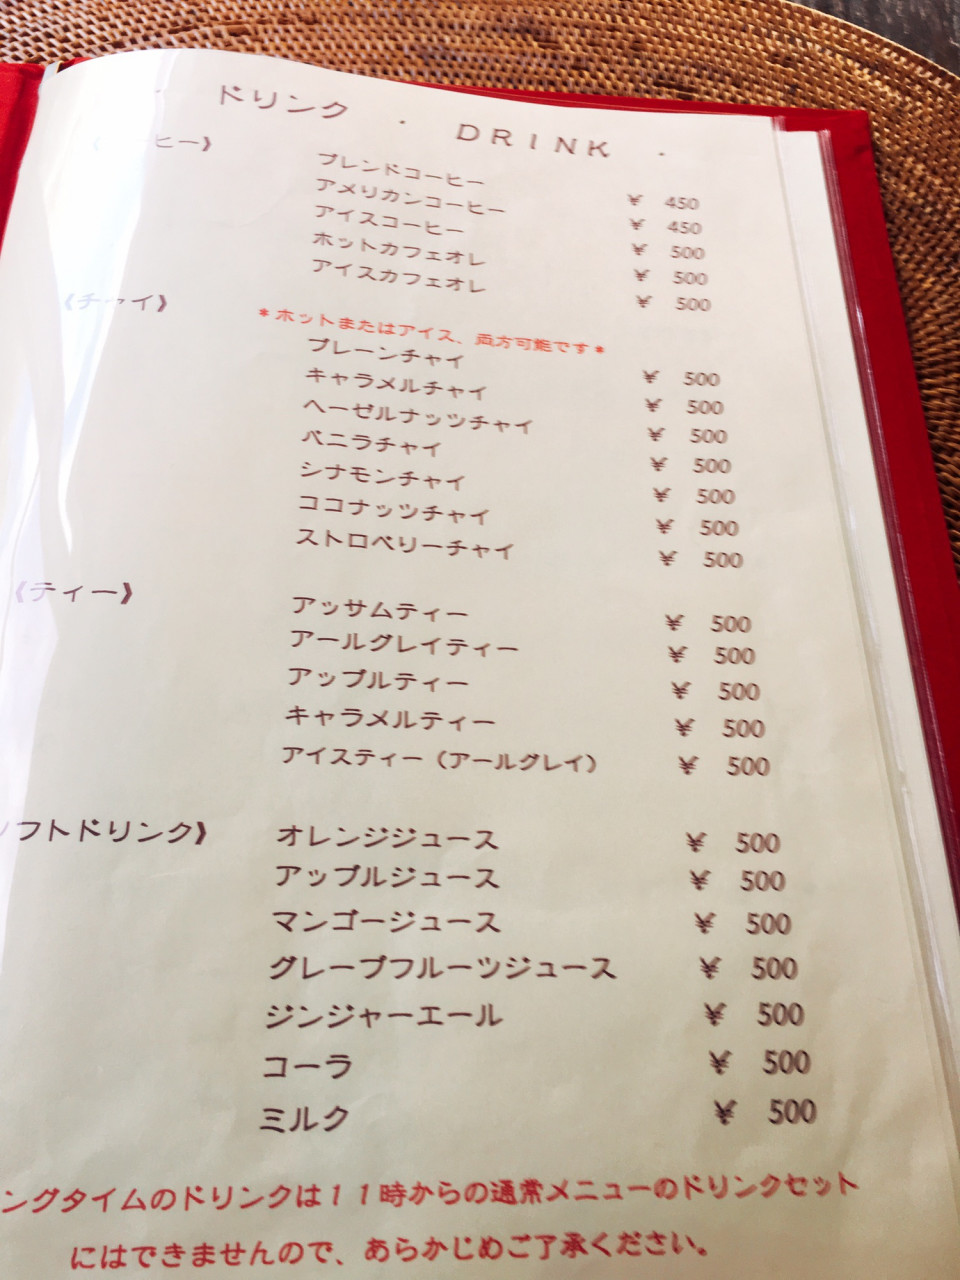 ドリンク ・ DRINK ・
ヒー》
ブレンドコーヒー ¥ 450
アメリカンコーヒー ¥ 450
アイスコーヒー ¥ 500
ホットカフェオレ ¥ 500
アイスカフェオレ ¥ 500
《チャイ》
*ホットまたはアイス、両方可能です*
プレーンチャイ ¥ 500
キャラメルチャイ ¥ 500
ヘーゼルナッツチャイ ¥ 500
バニラチャイ ¥ 500
シナモンチャイ ¥ 500
ココナッツチャイ ¥ 500
ストロベリーチャイ ¥ 500
《ティー》
アッサムティー ¥ 500
アールグレイティー ¥ 500
アップルティー ¥ 500
キャラメルティー ¥ 500
アイスティー（アールグレイ） ¥ 500
ソフトドリンク》
オレンジジュース ¥ 500
アップルジュース ¥ 500
マンゴージュース ¥ 500
グレープフルーツジュース ¥ 500
ジンジャーエール ¥ 500
コーラ ¥ 500
ミルク ¥ 500
ングタイムのドリンクは１１時からの通常メニューのドリンクセット
にはできませんので、あらかじめご了承ください。